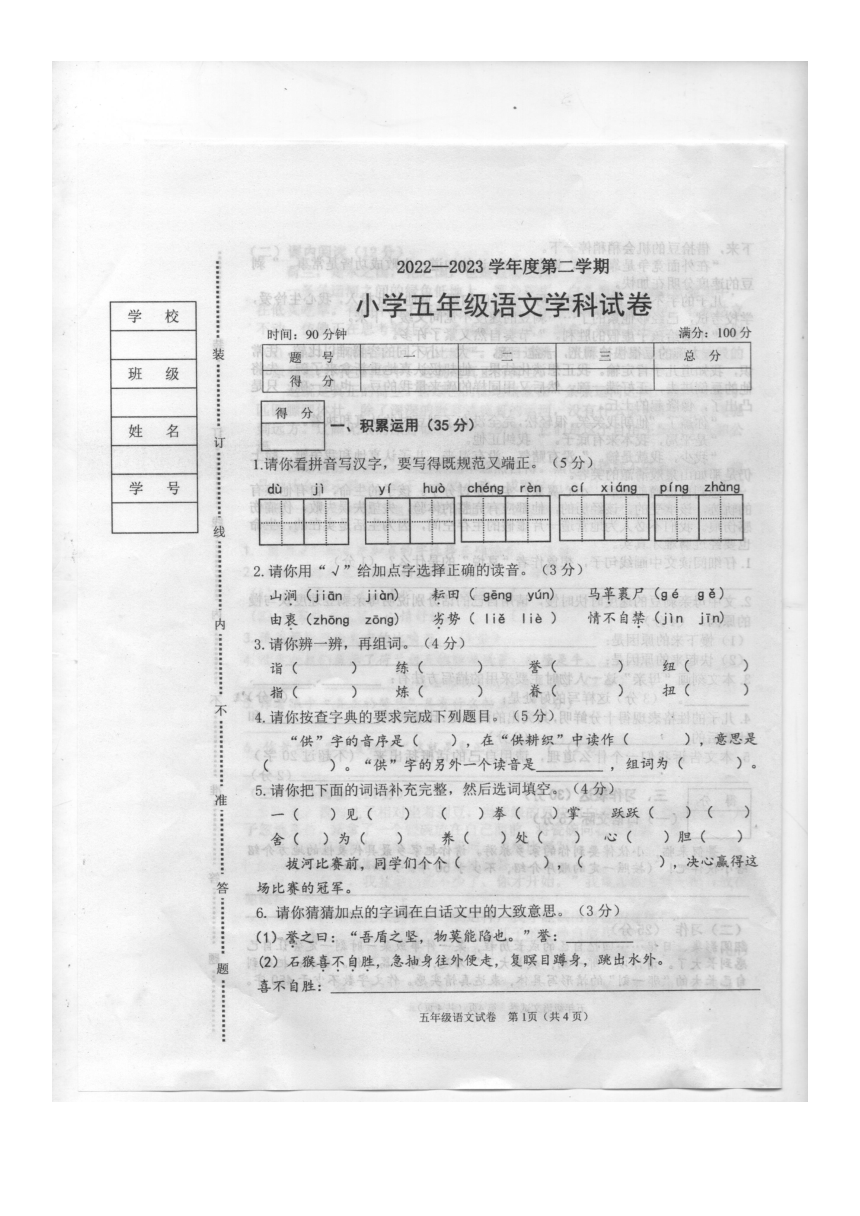 2022—2023 学年度第二学期
小学五年级语文学科试卷
时间：90 分钟 满分：100 分
题 号 一 二 三 总 分
得 分
学 校
班 级
姓 名
学 号
装
订
线
内
不
准
答
题
得 分
一、积累运用（35 分）
1.请你看拼音写汉字，要写得既规范又端正。（5 分）
dù jì yí huò chéng rèn cí xiáng píng zhàng
2.请你用“√”给加点字选择正确的读音。（3 分）
山涧（jiān jiàn） 耘田（ gēng yún） 马革裹尸（gé gě）
由衷（zhōng zōng） 劣势（ liě liè ） 情不自禁（jìn jīn）
3.请你辨一辨，再组词。（4 分）
诣（ ） 练（ ） 誉（ ） 纽（ ）
指（ ） 炼（ ） 眷（ ） 扭（ ）
4.请你按查字典的要求完成下列题目。（5 分）
“供”字的音序是（ ），在“供耕织”中读作（ ），意思是
（ ）。“供”字的另外一个读音是________，组词为（ ）。
5.请你把下面的词语补充完整，然后选词填空。（4 分）
一（ ）见（ ） （ ）拳（ ）掌 跃跃（ ）（ ）
舍（ ）为（ ） 养（ ）处（ ） 心（ ）胆（ ）
拔河比赛前，同学们个个（ ），（ ），决心赢得这
场比赛的冠军。
6. 请你猜猜加点的字词在白话文中的大致意思。（3 分）
(1) 誉之曰：“吾盾之坚，物莫能陷也。”誉：
(2) 石猴喜不自胜，急抽身往外便走，复瞑目蹲身，跳出水外。
喜不自胜：
五年级语文试卷 第1页（共 4 页）